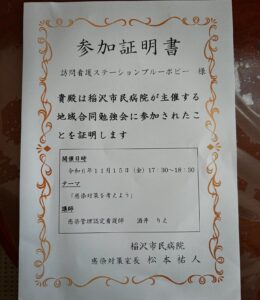 参加証明書
訪問看護ステーションブルーポピー 様
貴殿は稲沢市民病院が主催する
地域合同勉強会に参加されたこ
とを証明します
開催日時
令和6年11月15日(金)17:30~18:30
テーマ
「感染対策を考えよう」
講師
感染管理認定看護師 酒井 りえ
稲沢市民病院
感染対策室長 松本祐人